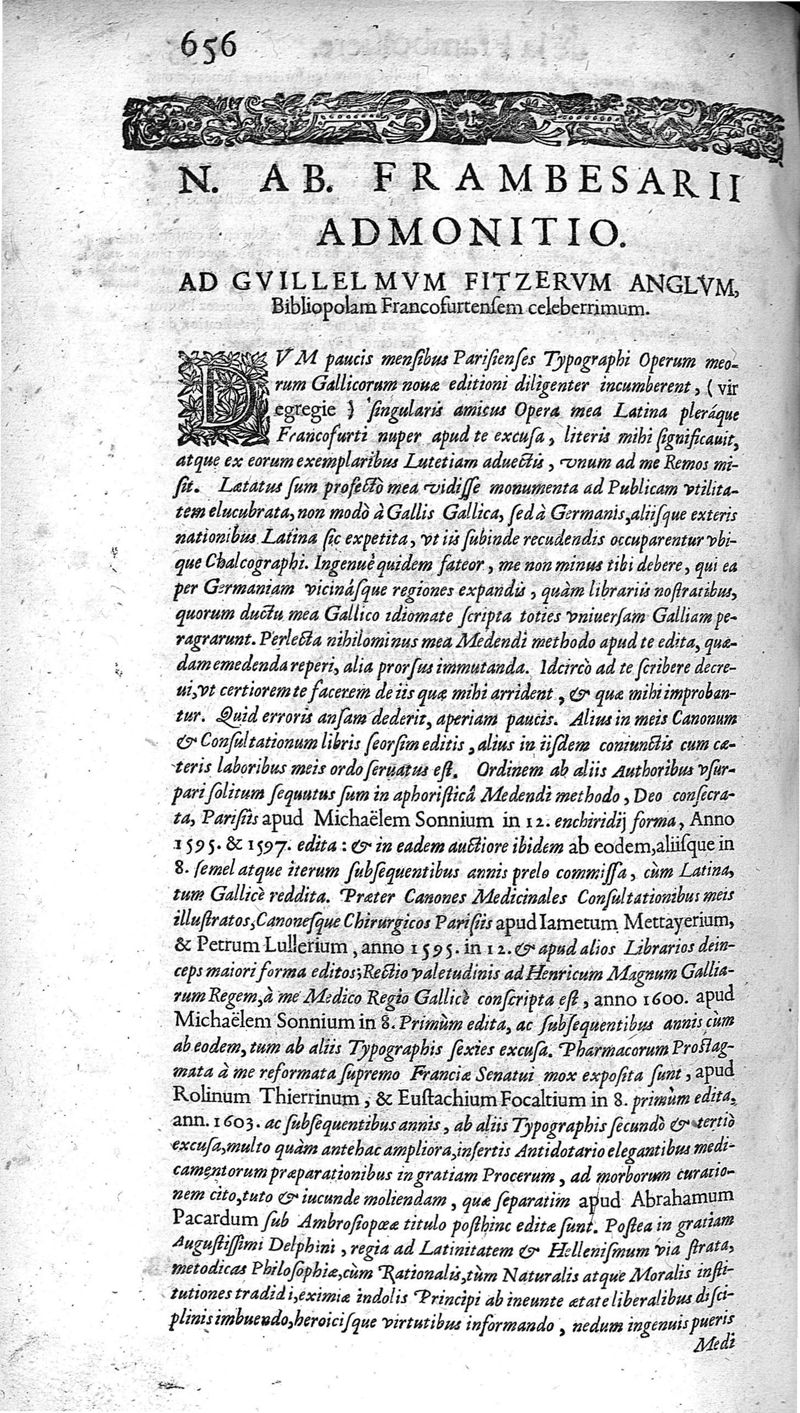 656
N. AB. FRAMBESARII
ADMONITIO.
AD GVILLELMVM FITZERVM ANGLVM,
Bibliopolam Francofurtenſem celeberrimum.
DVM paucis menſibus Pariſienſes Typographi Operum meo-
rum Gallicorum nouæ editioni diligenter incumberent, (vir
egregie) ſingularis amicus Opera mea Latina pleráque
Francofurti nuper apud te excuſa, literis mihi ſignificauit,
atque ex eorum exemplaribus Lutetiam aduectis, vnum ad me Remos mi-
ſit. Lætatus ſum profectò mea vidiſſe monumenta ad Publicam vtilita-
tem elucubrata, non modò à Gallis Gallica, ſed à Germanis, aliiſque exteris
nationibus Latina ſic expetita, vt iis ſubinde recudendis occuparentur vbi-
que Chalcographi. Ingenuè quidem fateor, me non minus tibi debere, qui ea
per Germaniam vicináſque regiones expandis, quàm librariis noſtratibus,
quorum ductu mea Gallico idiomate ſcripta toties vniuerſam Galliam pe-
ragrarunt. Perlecta nihilominus mea Medendi methodo apud te edita, quæ-
dam emedenda reperi, alia prorſus immutanda. Idcircò ad te ſcribere decre-
ui, vt certiorem te facerem de iis quæ mihi arrident, & quæ mihi improban-
tur. Quid erroris anſam dederit, aperiam paucis. Alius in meis Canonum
& Conſultationum libris ſeorſim editis, alius in iiſdem coniunctis cum cæ-
teris laboribus meis ordo ſeruatus eſt. Ordinem ab aliis Authoribus vſur-
pari ſolitum ſequutus ſum in aphoriſticâ Medendi methodo, Deo conſecra-
ta, Pariſiis apud Michaëlem Sonnium in 12. enchiridij forma, Anno
1595. & 1597. edita: & in eadem auctiore ibidem ab eodem, aliiſque in
8. ſemel atque iterum ſubſequentibus annis prelo commiſſa, cùm Latina,
tum Gallicè reddita. Præter Canones Medicinales Conſultationibus meis
illuſtratos, Canoneſque Chirurgicos Pariſiis apud Iametum Mettayerium,
& Petrum Lullerium, anno 1595. in 12. & apud alios Librarios dein-
ceps maiori forma editos; Rectio valetudinis ad Henricum Magnum Gallia-
rum Regem, à me Medico Regio Gallicè conſcripta eſt, anno 1600. apud
Michaëlem Sonnium in 8. Primùm edita, ac ſubſequentibus annis cùm
ab eodem, tum ab aliis Typographis ſexies excuſa. Pharmacorum Proſtag-
mata à me reformata ſupremo Franciæ Senatui mox expoſita ſunt, apud
Rolinum Thierrinum, & Euſtachium Focaltium in 8. primùm edita,
ann. 1603. ac ſubſequentibus annis, ab aliis Typographis ſecundò & tertiò
excuſa, multo quàm antehac ampliora, inſertis Antidotario elegantibus medi-
camentorum præparationibus in gratiam Procerum, ad morborum curatio-
nem cito, tuto & iucunde moliendam, quæ ſeparatim apud Abrahamum
Pacardum ſub Ambroſiopœæ titulo poſthinc editæ ſunt. Poſtea in gratiam
Auguſtiſſimi Delphini, regia ad Latinitatem & Helleniſmum via ſtrata,
metodicas Philoſophiæ, cùm Rationalis, tùm Naturalis atque Moralis inſti-
tutiones tradidi, eximiæ indolis Principi ab ineunte ætate liberalibus diſci-
plinis imbuendo, heroiciſque virtutibus informando, nedum ingenuis pueris
Medi